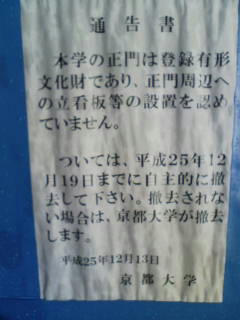 通告書
本学の正門は登録有形
文化財であり、正門周辺へ
の立看板等の設置を認め
ていません。
ついては、平成25年12
月19日までに自主的に撤
去して下さい。撤去されな
い場合は、京都大学が撤去
します。
平成25年12月13日
京都大学